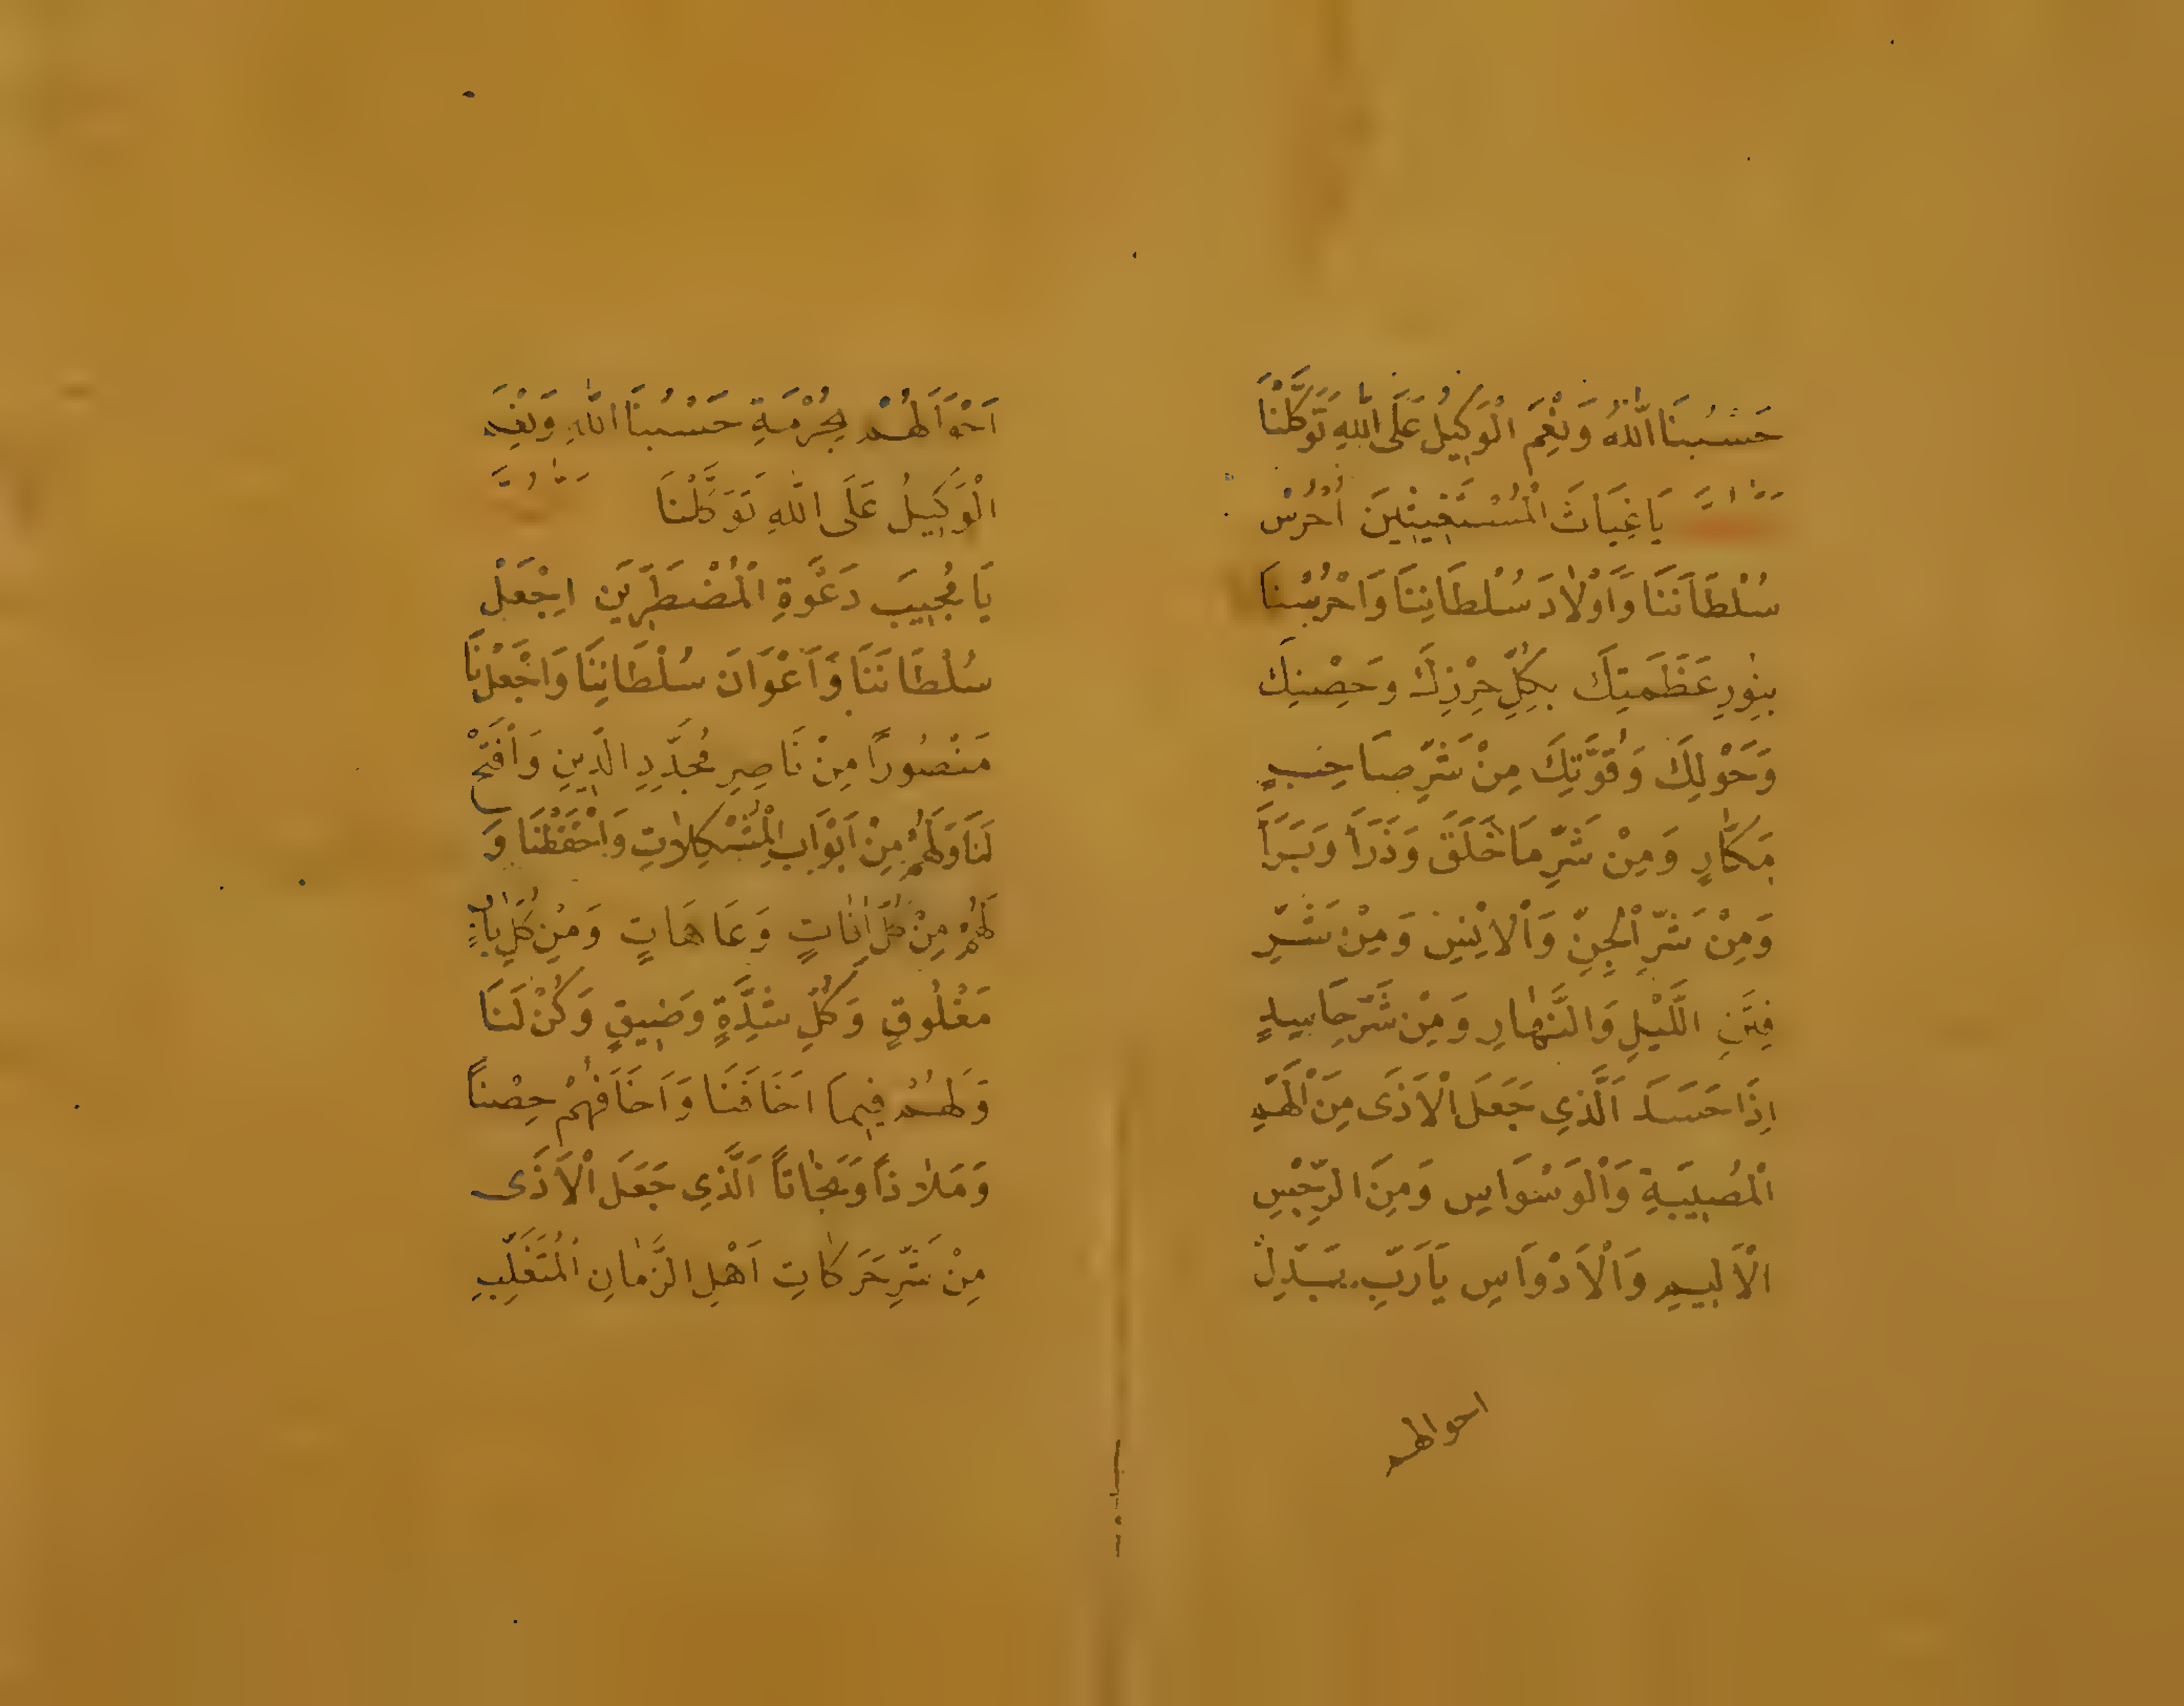 حَسْبُنَا اللّٰهُ وَنِعْمَ الْوَكِيْلُ عَلَى اللّٰهِ تَوَكَّلْنَا
يَا غِيَاثَ الْمُسْتَغِيثِينَ اُحْرُسْ
سُلْطَانَنَا وَاَوْلَادَ سُلْطَانِنَا وَاحْرُسْنَا
بِنُورِ عَظَمَتِكَ بِكُلِّ حِرْزِكَ وَحِصْنِكَ
وَحَوْلِكَ وَقُوَّتِكَ مِنْ شَرِّ صَاحِبٍ
مَكَّارٍ وَمِنْ شَرِّ مَا خَلَقَ وَذَرَاَ وَبَرَاَ
وَمِنْ شَرِّ الْجِنِّ وَالْاِنْسِ وَمِنْ شَرِّ
فِتَنِ اللَّيْلِ وَالنَّهَارِ وَمِنْ شَرِّ حَاسِدٍ
اِذَا حَسَدَ اَلَّذِي جَعَلَ الْاَذَى مِنَ الْهَمِّ
الْمُصِيبَةِ وَالْوَسْوَاسِ وَمِنَ الرِّجْسِ
الْاَلِيمِ وَالْاَدْوَاسِ يَا رَبِّ بَدِّلْ
احوالهم
اَحْوَالَهُمْ بِحُرْمَةِ حَسْبُنَا اللّٰهِ وَنِعْمَ
الْوَكِيْلُ عَلَى اللّٰهِ تَوَكَّلْنَا
يَا مُجِيبَ دَعْوَةِ الْمُضْطَرِّيَنَ اِجْعَلْ
سُلْطَانَنَا وَاَعْوَانَ سُلْطَانِنَا وَاجْعَلْنَا
مَنْصُورًا مِنْ نَاصِرِ مُجَدِّدِ الدِّينِ وَافْتَحْ
لَنَا وَلَهُمْ مِنْ اَبْوَابِ الْمُشْكِلَاتِ وَاحْفَظْنَا وَ
لَهُمْ مِنْ كُلِّ اٰفَاتٍ وَعَاهَاتٍ وَمِنْ كُلِّ بَابٍ
مَغْلُوقٍ وَكُلِّ شِدَّةٍ وَضِيقٍ وَكُنْ لَنَا
وَلَهُمْ فِيمَا اَخَافَنَا وَاَخَافَهُمْ حِصْنًا
وَمَلَاذًا وَنَجَاتًا اَلَّذِي جَعَلَ الْاَذَى
مِنْ شَرِّ حَرَكَاتِ اَهْلِ الزَّمَانِ الْمُتَغَلِّبِ